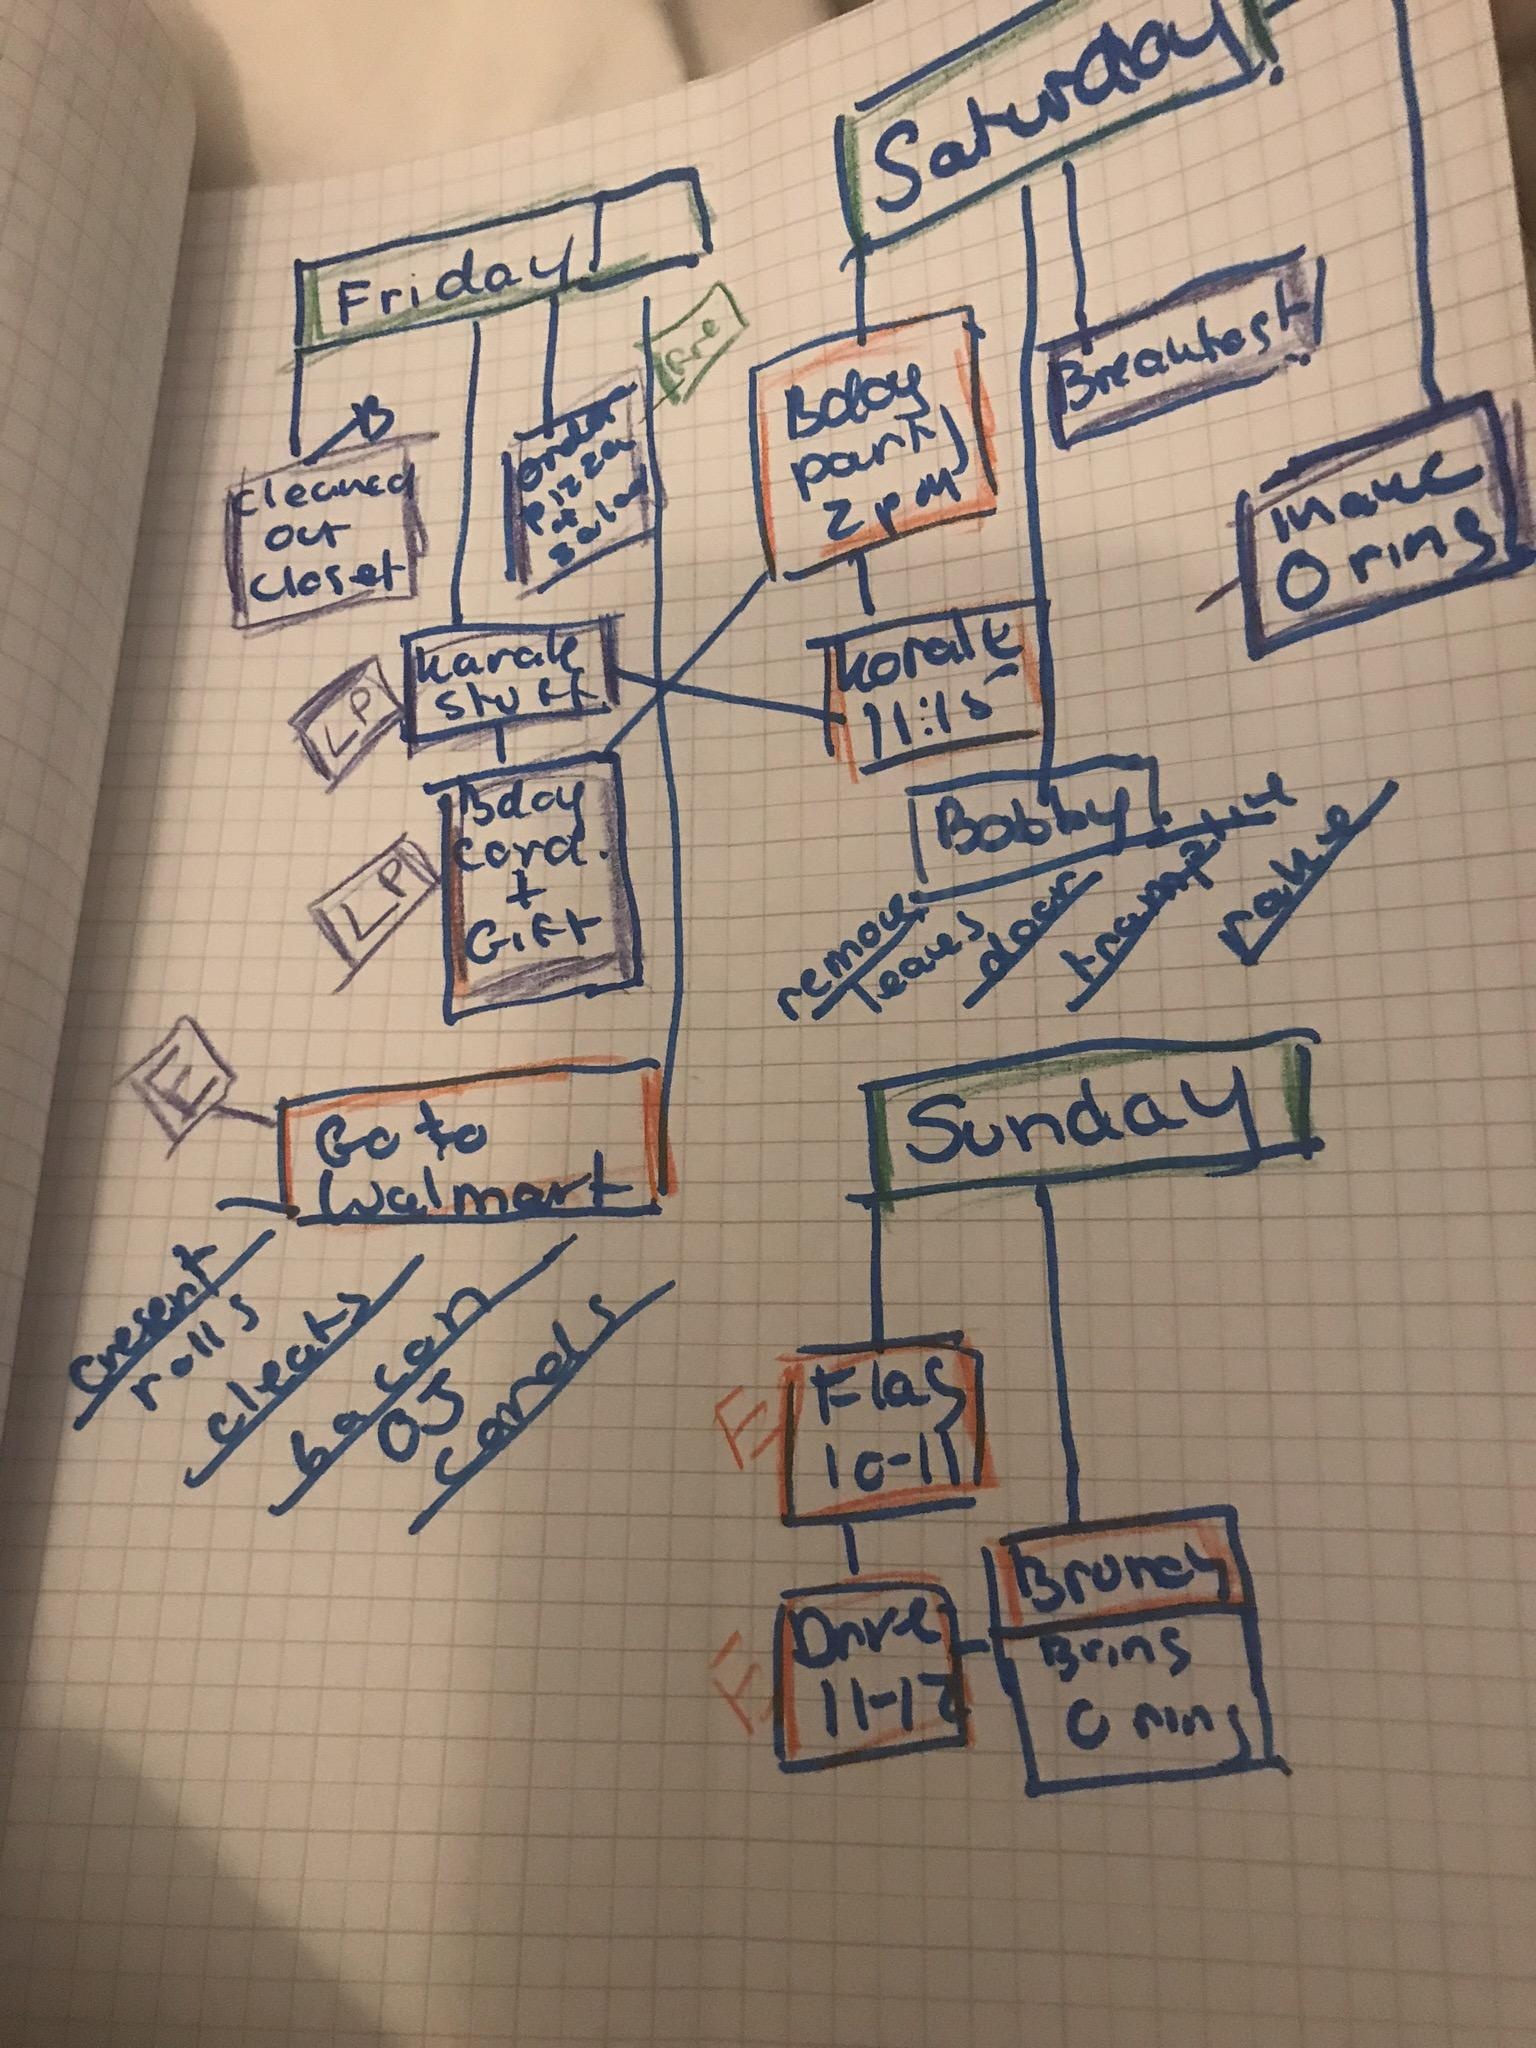 Friday
B
cleaned
out
closet
order
pizza
salad
Pre
LP
karate
stuff
LP
Bday
card
+
Gift
E
Go to
Walmart
cresent
rolls
cleats
bacon
OJ
cards
Saturday
Bday
party
2 pm
karate
11:15
Breakfast
make
O ring
Bobby
remove
leaves
door
tramp
rake
Sunday
E
Flag
10-11
E
Drive
11-12
Brunch
Bring
O ring